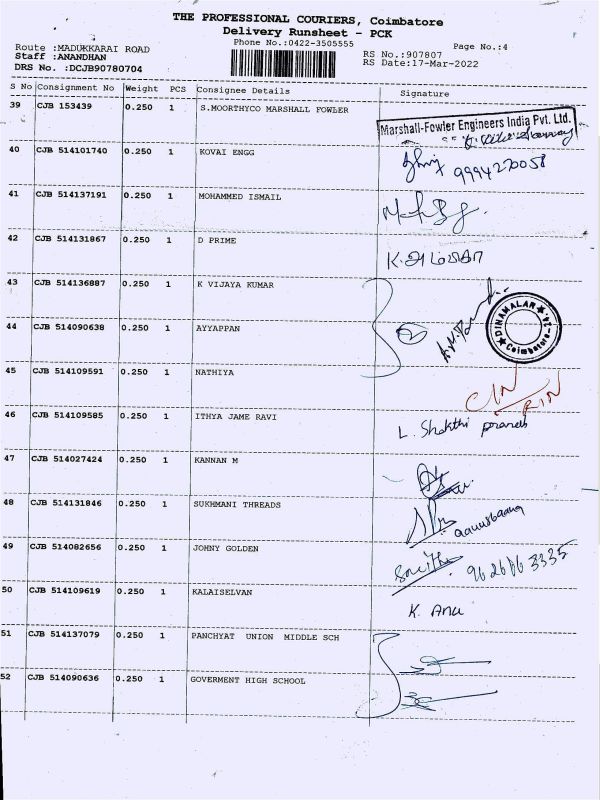 THE PROFESSIONAL COURIERS, Coimbatore
Delivery Runsheet - PCK
Phone No.:0422-3505555
Page No.:4
Route :MADUKKARAI ROAD
RS No.:907807
Staff :ANANDHAN
RS Date:17-Mar-2022
DRS No. :DCJB90780704
S No Consignment No Weight PCS Consignee Details Signature
39 CJB 153439 0.250 1 S.MOORTHYCO MARSHALL FOWLER
Marshall-Fowler Engineers India Pvt. Ltd.
40 CJB 514101740 0.250 1 KOVAI ENGG
9994270058
41 CJB 514137191 0.250 1 MOHAMMED ISMAIL
42 CJB 514131867 0.250 1 D PRIME
43 CJB 514136887 0.250 1 K VIJAYA KUMAR
DINAMALAR
Coimbatore
44 CJB 514090638 0.250 1 AYYAPPAN
45 CJB 514109591 0.250 1 NATHIYA
46 CJB 514109585 0.250 1 ITHYA JAME RAVI
L. Shakthi
47 CJB 514027424 0.250 1 KANNAN M
48 CJB 514131846 0.250 1 SUKHMANI THREADS
49 CJB 514082656 0.250 1 JOHNY GOLDEN
50 CJB 514109619 0.250 1 KALAISELVAN
K. Anu
51 CJB 514137079 0.250 1 PANCHYAT UNION MIDDLE SCH
52 CJB 514090636 0.250 1 GOVERMENT HIGH SCHOOL